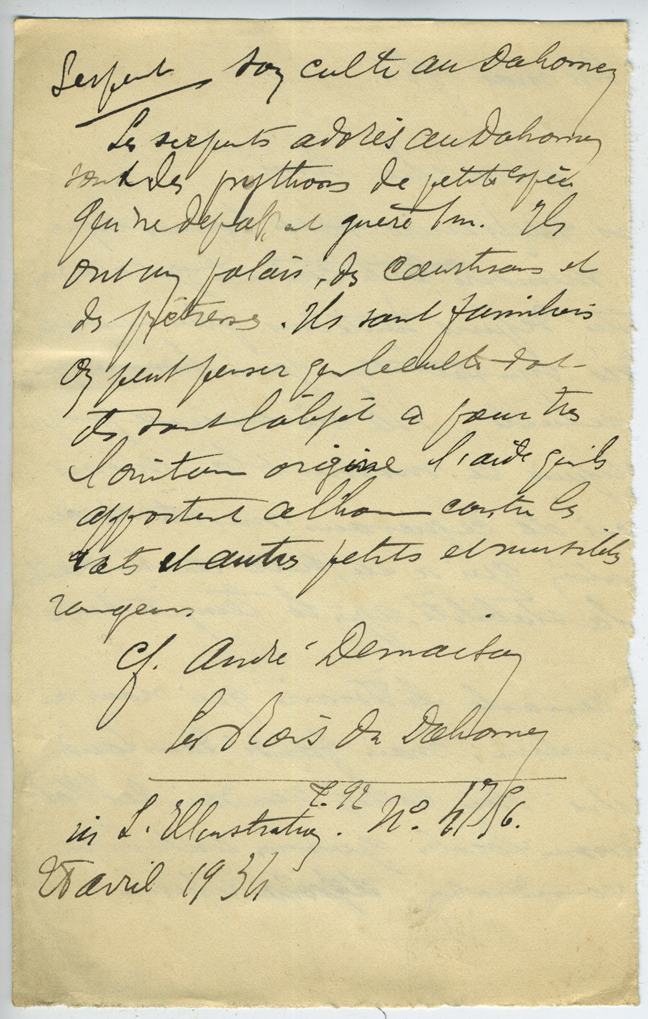 Serpent son culte au Dahomey
Les serpents adorés au Dahomey
sont des pythons de petite espèce
qui ne dépassent guère 1m. Ils
ont un palais, des courtisans et
des prêtresses. Ils sont familiers
on peut penser que le culte dont
ils sont l'objet a pour très
lointaine origine l'aide qu'ils
apportent à l'homme contre les
rats et autres petits et nuisibles
rongeurs
cf. André Demaison
Les Rois du Dahomey
p. 92
in L'Illustration. No. 4756.
28 avril 1934